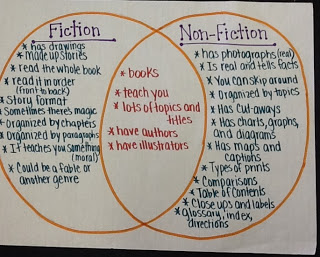 Fiction
* has drawings
* Made up stories
* read the whole book
* read in order
(front to back)
* Story format
* Sometimes there's magic
* Organized by chapters
* Organized by paragraphs
* It teaches you something
(moral)
* Could be a fable or
another genre
* books
* teach you
* lots of topics and
titles
* have authors
* have illustrators
Non-Fiction
* has photographs (real)
* Is real and tells facts
* You can skip around
* Organized by topics
* Has Cut-aways
* Has charts, graphs,
and diagrams
* Has maps and
captions
* Types of prints
* Comparisons
* Table of Contents
* Close ups and labels
* Glossary, index,
directions